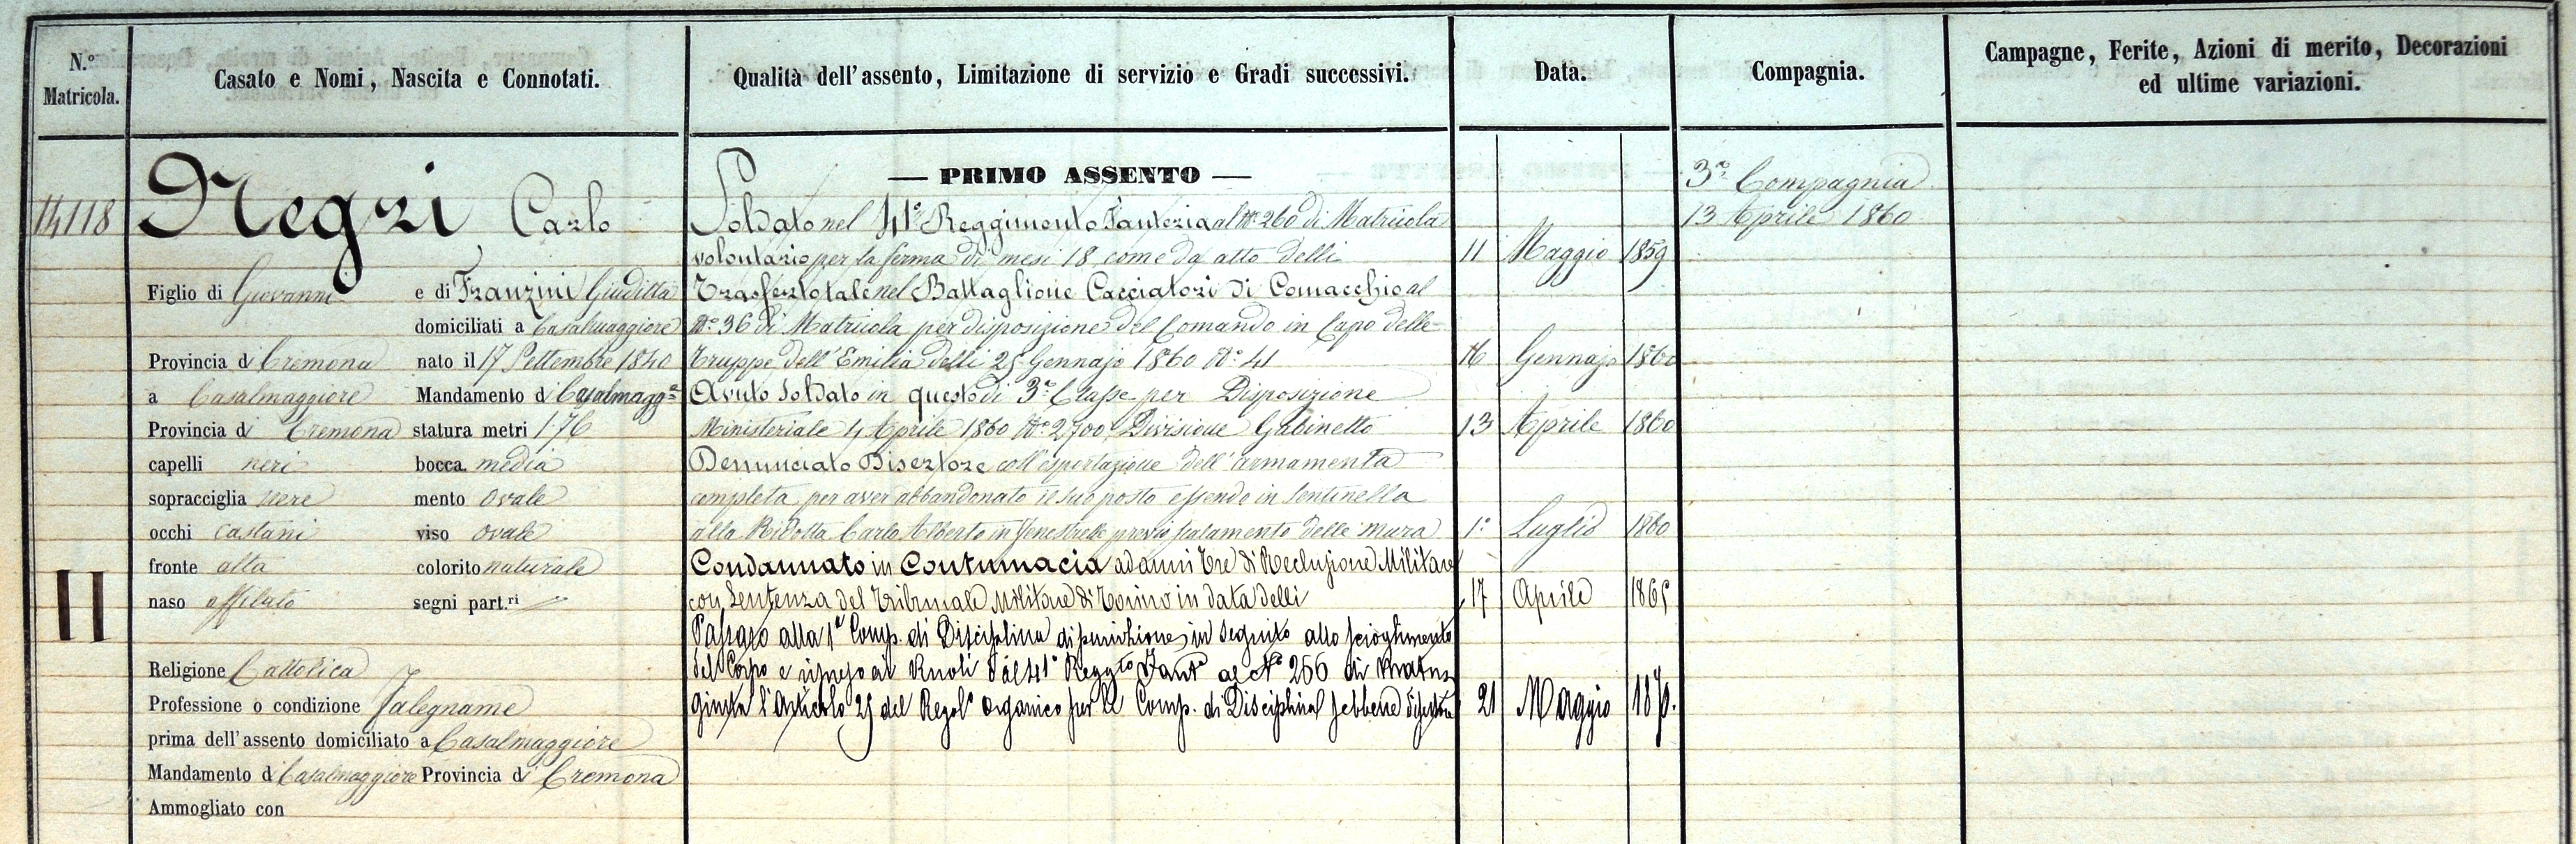 N.º Matricola.
Casato e Nomi, Nascita e Connotati.
Qualità dell'assento, Limitazione di servizio e Gradi successivi.
Data.
Compagnia.
Campagne, Ferite, Azioni di merito, Decorazioni
ed ultime variazioni.
14118
Negri Carlo
Figlio di Giovanni e di Franzini Giuditta
domiciliati a Casalmaggiore
Provincia di Cremona nato il 17 Settembre 1840
a Casalmaggiore Mandamento di Casalmagg.e
Provincia di Cremona statura metri 1.76
capelli neri bocca media
sopracciglia nere mento ovale
occhi castani viso ovale
fronte alta colorito naturale
naso affilato segni part.ri
II
Religione Cattolica
Professione o condizione Falegname
prima dell'assento domiciliato a Casalmaggiore
Mandamento di Casalmaggiore Provincia di Cremona
Ammogliato con
— PRIMO ASSENTO —
Soldato nel 41º Reggimento Fanteria al Nº 260 di Matricola
volontario per la ferma di mesi 18 come da atto delli 11 Maggio 1859
Trasferto tale nel Battaglione Cacciatori di Comacchio al
Nº 36 di Matricola per disposizione del Comando in Capo delle
Truppe dell'Emilia delli 25 Gennajo 1860 Nº 41 16 Gennajo 1860
Avuto Soldato in questo di 3ª Classe per Disposizione
Ministeriale 4 Aprile 1860 Nº 2700 Divisione Gabinetto 13 Aprile 1860
Denunciato Disertore coll'esportazione dell'armamento
completo per aver abbandonato il suo posto essendo in sentinella
alla Ridotta Carlo Alberto in Fenestrelle previo scalamento delle mura 1º Luglio 1860
Condannato in Contumacia ad anni tre di Reclusione Militare
con Sentenza del Tribunale Militare di Torino in data delli 17 Aprile 1865
Passato alla 1ª Comp. di Disciplina di punizione in seguito allo scioglimento
del Corpo e ai Ruoli dal 41º Regg.to Fant.a al Nº 266 di
Giusta l'Articolo 25 del Regol.º Organico per le Comp. di Disciplina sebbene 21 Maggio
3ª Compagnia
13 Aprile 1860